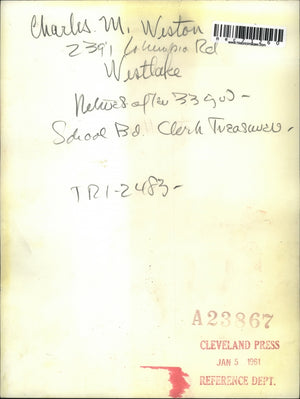 Charles. M. Weston
2391 Columbia Rd
Westlake
Retires after 33 yrs -
School Bd. Clerk Treasurer -
TR1-2483-
A23867
CLEVELAND PRESS
JAN 5 1961
REFERENCE DEPT.